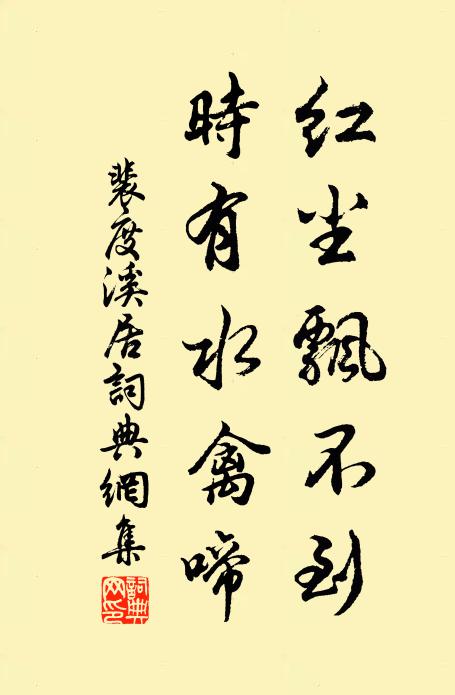 红尘飘不到
時有水禽啼
裴度溪居詞典網集
詞典网印